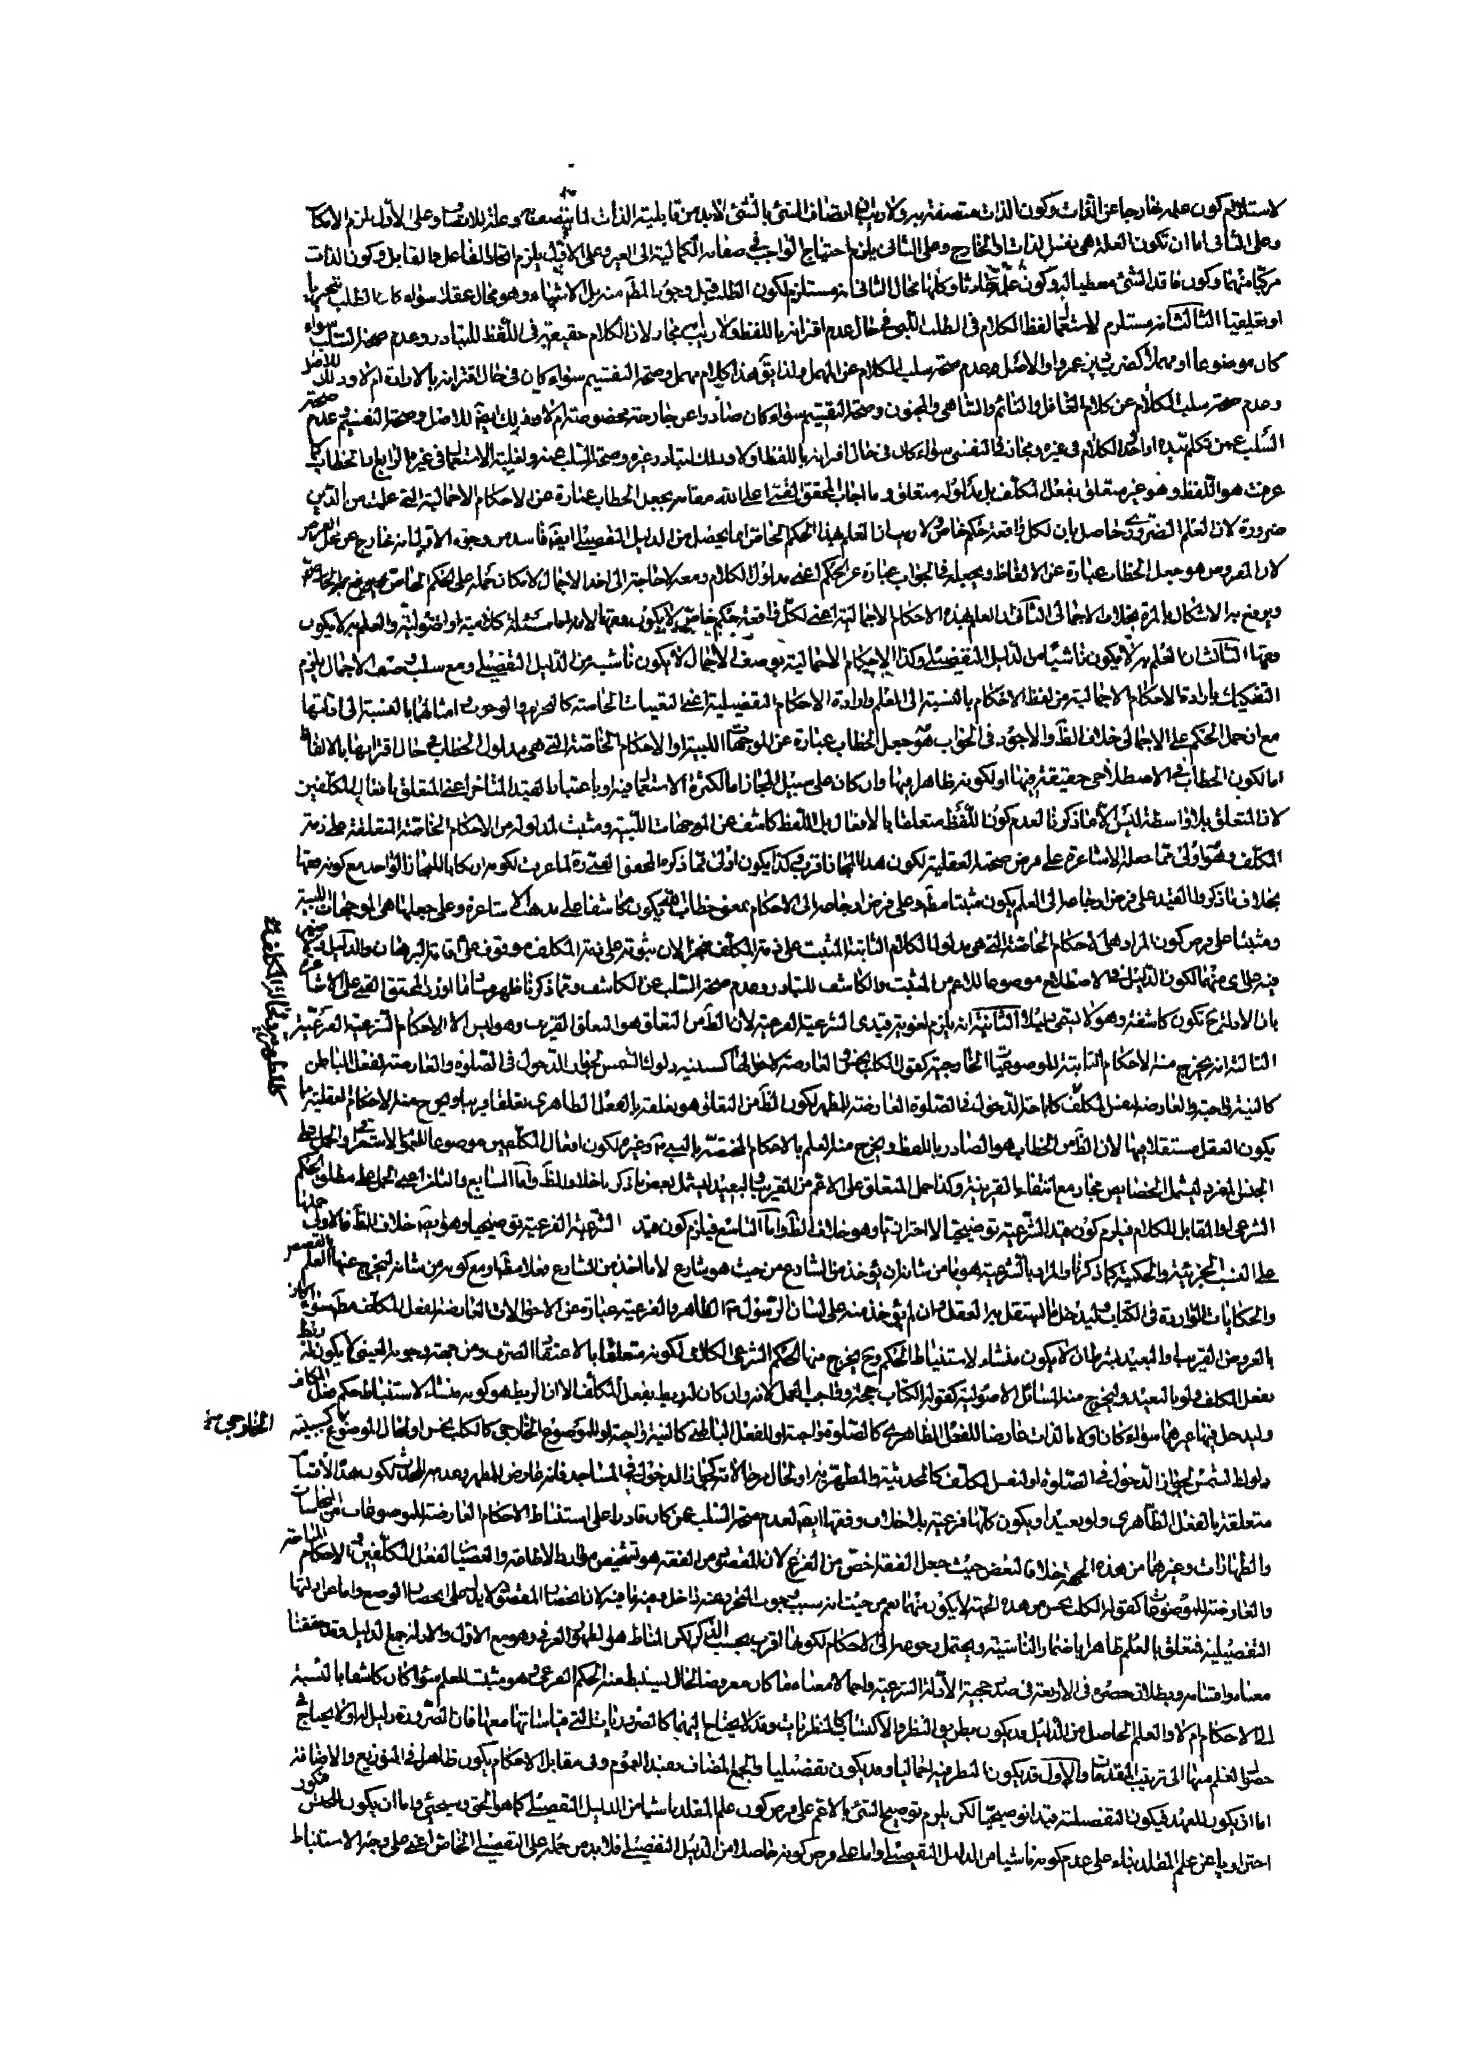 لاستلزام كون علمه خارجا عن الذات وكون الذات متصفة به ولا ريب في اتصاف الشئ بالشئ لابد من قابلية الذات لما يتصف به وعلة للاتصاف وعلى الاول يلزم الامكان
وعلى الثاني اما ان تكون العلة هي نفس الذات او الخارج وعلى الثاني يلزم احتياج الواجب في صفاته الكمالية الى الغير وعلى الاول يلزم اتحاد الفاعل والقابل وكون الذات
مركبا منهما وكون فاقد الشئ معطيا له وكون علمه حادثا وكلها محال الثاني انه مستلزم لكون الطلب قبل وجود المط منه بل الاشياء وهو محال عقلا سواء كان الطلب تنجيزيا
او تعليقيا الثالث انه مستلزم لاستعمال لفظ الكلام في الطلب اللبي في حال عدم اقترانه باللفظ ولا ريب انه مجاز لان الكلام حقيقة في اللفظ للتبادر وعدم صحة السلب سواء
كان موضوعا او مهملا كضرب زيد عمروا والاصل وعدم صحة سلب الكلام عن المهمل ولذا يق هذا كلام مهمل وصحة التقسيم سواء كان في حال اقترانه بالارادة ام لا وذلك للاصل
وعدم صحة سلب الكلام عن كلام الغافل والنائم والساهي والمجنون وصحة التقسيم سواء كان صادرا عن جارحة مخصوصة ام لا وذلك ايضا للاصل وصحة التقسيم وعدم صحة
السلب عمن تكلم بيده او احد الكلام في غيره ومجاز في النفسي سواء كان في حال اقترانه باللفظ او لا وذلك لتبادر غيره وصحة السلب عنه ولغلبة الاستعمال في غيره الرابع ان الخطاب كما
عرفت هو اللفظ وهو غير متعلق بفعل المكلف بل مدلوله متعلق وما اجاب المحقق القمي اعلى الله مقامه بجعل الخطاب عبارة عن الاحكام الاجمالية التي علمت من الدين
ضرورة لان العلم الضروري حاصل بان لكل واقعة حكم خاص ولا ريب ان العلم بهذا الحكم الخاص انما يحصل من الدليل التفصيلي ايضا فاسد من وجوه الاول انه خارج عن محل الغرض
لان المفروض هو جعل الخطاب عبارة عن الالفاظ ويجعله في الجواب عبارة عن الحكم اعني مدلول الكلام ومعه لا حاجة الى اخذ الاجمال لامكان حمله على الحكم الخاص
ويرفع به الاشكال بالمرة بخلاف الاجمالي الثاني ان العلم بهذه الاحكام الاجمالية اعني لكل واقعة حكم خاص لا يكون فقها لانه اما مسئلة كلامية او اصولية والعلم به لا يكون
فقها الثالث ان العلم به لا يكون ناشيا من الدليل التفصيلي وكذا الاحكام الاجمالية بوصف الاجمال لا يكون ناشية من الدليل التفصيلي ومع سلب وصف الاجمال يلزم
التفكيك بارادة الاحكام الاجمالية من لفظ الاحكام بالنسبة الى العلم وارادة الاحكام التفصيلية اعني التعينات الخاصة كالتحريم والوجوب وامثالهما بالنسبة الى ادلتها
مع ان حمل الحكم على الاجمالي خلاف الظ والاجود في الجواب هو جعل الخطاب عبارة عن الموجهات اللبية او الاحكام الخاصة التي هي مدلول الخطاب في حال اقترانها بالالفاظ
اما لكون الخطاب في الاصطلاحي حقيقة فيها او لكونه ظاهرا فيها وان كان على سبيل المجاز اما لكثرة الاستعمال فيه او باعتبار القيد المتاخر اعني المتعلق بافعال المكلفين
لان المتعلق بلا واسطة ليس الا ما ذكرنا لعدم كون اللفظ متعلقا بالافعال بل اللفظ كاشف عن الموجهات اللبية ومثبت لمدلوله من الاحكام الخاصة المتعلقة على ذمة
المكلف وهو اولى مما جعله الاشاعرة على فرض صحته العقلية لكون هذا المجاز اقرب وكذا يكون اولى مما ذكره المحقق القمي ره لما عرفت لكونه ارتكابا للمجاز الواحد مع كونه فقها
بخلاف ما ذكره والقيد على فرض ارجاعه الى العلم يكون مثبتا مط وعلى فرض ارجاعه الى الاحكام بمعنى خطاب الله يكون كاشفا على مذهب الاشاعرة وعلى جعلها هي الموجهات اللبية
ومثبتا على فرض كون المراد هي الاحكام الخاصة التي هي مدلول الكلام الثابتة المثبت على ذمة المكلف لان ثبوته على ذمة المكلف موقوف على اقامة البرهان والدليل
فيه على اى منهما لكون الدليل في الاصطلاح موضوعا للاعم من المثبت والكاشف للتبادر وعدم صحة السلب عن الكاشف ومما ذكرنا ظهر فساد ما اورد المحقق القمي على الاشاعرة
بان الادلة ح تكون كاشفة وهو لا يتم الثانية انه يلزم لغوية قيدى الشرعية الفرعية لان الظ من التعلق هو التعلق القريب وهو ليس الا الاحكام الشرعية الفرعية
الثالثة انه يخرج منه الاحكام الثابتة للموضوعات الخارجية كقوله الكلب نجس والعارضة لاحوالها كسببية دلوك الشمس لجواز الدخول في الصلوة والعارضة لفعل الباطن
كالنية واجبة والعارضة لنفس المكلف كاباحة الدخول في الصلوة العارضة للمطهر لكون الظ من التعلق هو تعلقه بالفعل الظاهرى تعلقا قريبا ويخرج منه الاحكام العقلية ما
يكون العقل مستقلا فيها لان الظ من الخطاب هو الصادر باللفظ ويخرج منه العلم بالاحكام المختصة بالنبي ص وغيره لكون افعال المكلفين موضوعا للعموم الاستغراقي والحمل على
الجنس المفرد ليشمل الخصايص مجاز مع انتفاء القرينة وكذا حمل المتعلق على الاعم من القريب والبعيد ليشمل بعض ما ذكر خلاف الظ واما السابع والتزام حمل على مطلق الحكم
الشرعي او المقابل للكلام فيلزم كون قيد الشرعية توضيحيا لا احترازيا وهو خلاف الظ واما التاسع فيلزم كون قيد الشرعية الفرعية توضيحيا وهو ايضا خلاف الظ فالاولى حملها
على النسب الجزئية والحكمية كما ذكرنا والمراد بالشرعية هو ما من شانه ان يؤخذ من الشارع من حيث هو شارع لا ما اخذ من الشارع فعلا مط ومع كونه من شانه ليخرج عنها العلم بالقصص
والحكايات الواردة في الكتاب وليدخل ما استقل به العقل وان لم يؤخذ منه على لسان الرسول ص الظاهر والفرعية عبارة عن الاحوالات العارضة لفعل المكلف مط سواء كان
بالعروض القريب او البعيد بشرط ان لا يكون منشاء لاستنباط الحكم وح يخرج منها الحكم الشرعي الكلامي لكونه متعلقا بالاعتقاد الصرف ومن جهة وجوبه العيني لا يكون له ربط
بفعل المكلف ولو بالبعيد ويخرج منه المسائل الاصولية كقوله الكتاب حجة وواجب العمل لانه وان كان له ربط بفعل المكلف الا ان الربط هو كونه منشاء لاستنباط حكم فعل المكلف
وليدخل فيها غيرهما سواء كان اولا وبالذات عارضا للفعل الظاهرى كالصلوة واجبة او للفعل الباطني كالنية واجبة او للموضوع الخارجي كالكلب نجس او لحال الموضوع الخارجي كسببية
دلوك الشمس لجواز الدخول في الصلوة او لنفس المكلف كالمحدثية والمطهرية او لحال من حالاته كجواز الدخول في المساجد فانه عارض للمطهر بعد من الحدث لكون هذه الاقسام
متعلقة بالفعل الظاهرى ولو بعيدا ويكون كلها فرعية بلا خلاف وفقها ايضا لعدم صحة السلب عمن كان قادرا على استنباط الاحكام العارضة للموضوعات من النجاسات
والطهارات وغيرهما من هذه الجهة خلافا لبعض حيث جعل الفقه اخص من الفرع لان المقصود من الفقه هو تشخيص موارد الاطاعة والعصيان لفعل المكلفين والاحكام الخاصة
والعارضة للموضوعات كقوله الكلب نجس من هذه الجهة لا يكون منهما نعم من حيث انه سبب وجوب التحرز عنه داخل فيه وفيه ان انحصار المقصود لا يدل على انحصار الوضع واما عن ادلتها
التفصيلية فمتعلق بالعلم ظاهرا باضمار الناشية ويحتمل رجوعه الى الاحكام لكونها اقرب بحسب الذكر لكن المناط هو الظهور العرفي وهو مع الاول والادلة جمع الدليل وقد حققنا
معناه واقسامه وبطلان حصره في الاربعة في صدر حجية الادلة الشرعية واجمالا معناه ما كان معروض الحال يستنبط عنه الحكم الفرعي وهو مثبت للعلم سواء كان كاشفا بالنسبة
الى الاحكام ام لا والعلم الحاصل من الدليل قد يكون بطريق النظر والاكتساب كالنظريات وقد لا يحتاج اليهما كالضروريات التي قياساتها معها فان الضرورة دليل له ولا يحتاج في
حصول العلم منها الى ترتيب المقدمات والاول قد يكون النظر فيه اجماليا وقد يكون تفصيليا والجمع المضاف يفيد العموم وفي مقابل الاحكام يكون ظاهرا في التوزيع والاضافة
اما ان يكون للعهد فيكون التفصيلية قيدا توضيحيا لكن يلزم توضيح الشئ بالاعم على فرض كون علم المقلد ناشيا من الدليل التفصيلي كما هو الحق وسيجئ واما ان يكون للجنس فيكون
احترازيا عن علم المقلد بناء على عدم كونه ناشيا من الدليل التفصيلي واما على فرض كونه حاصلا من الدليل التفصيلي فلابد من حمله على التفصيلي الخاص اعني على وجه الاستنباط